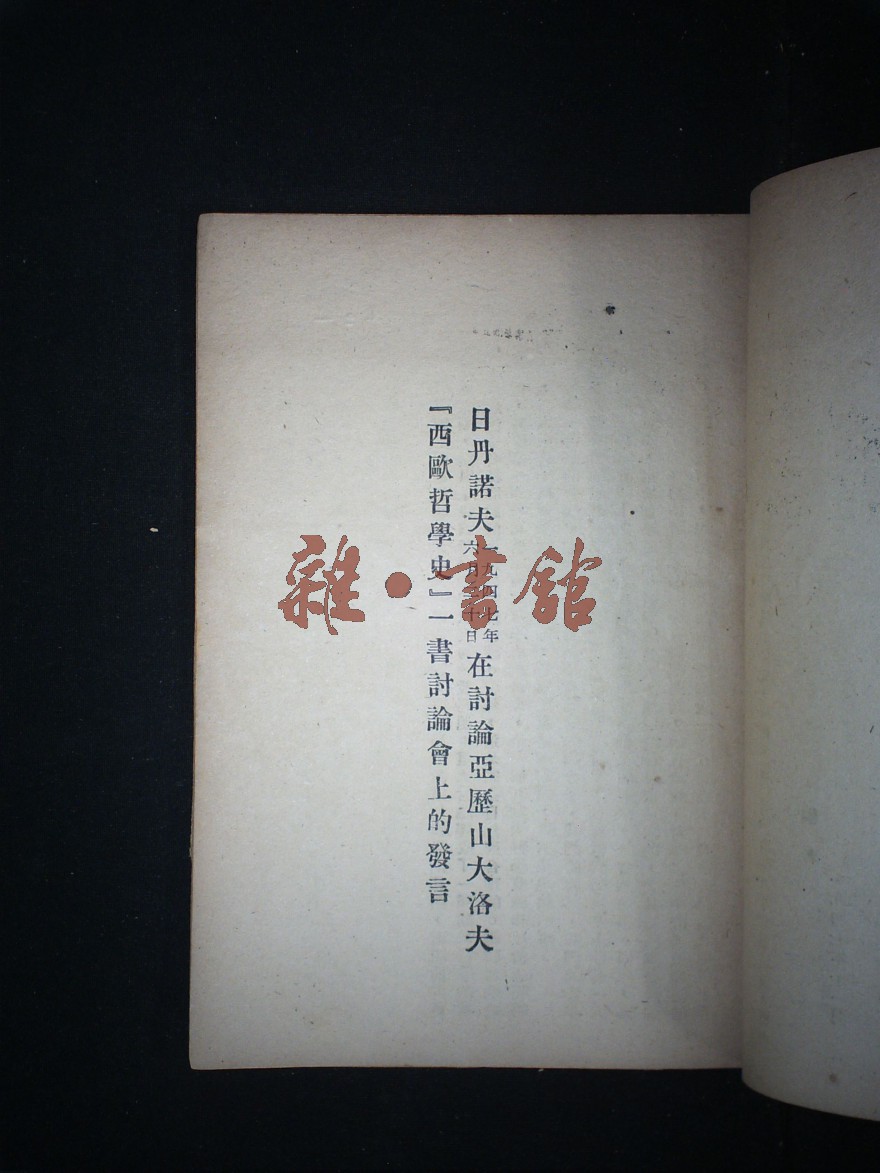 日丹諾夫一九四七年六月二十日在討論亞歷山大洛夫
『西歐哲學史』一書討論會上的發言
雜·書館